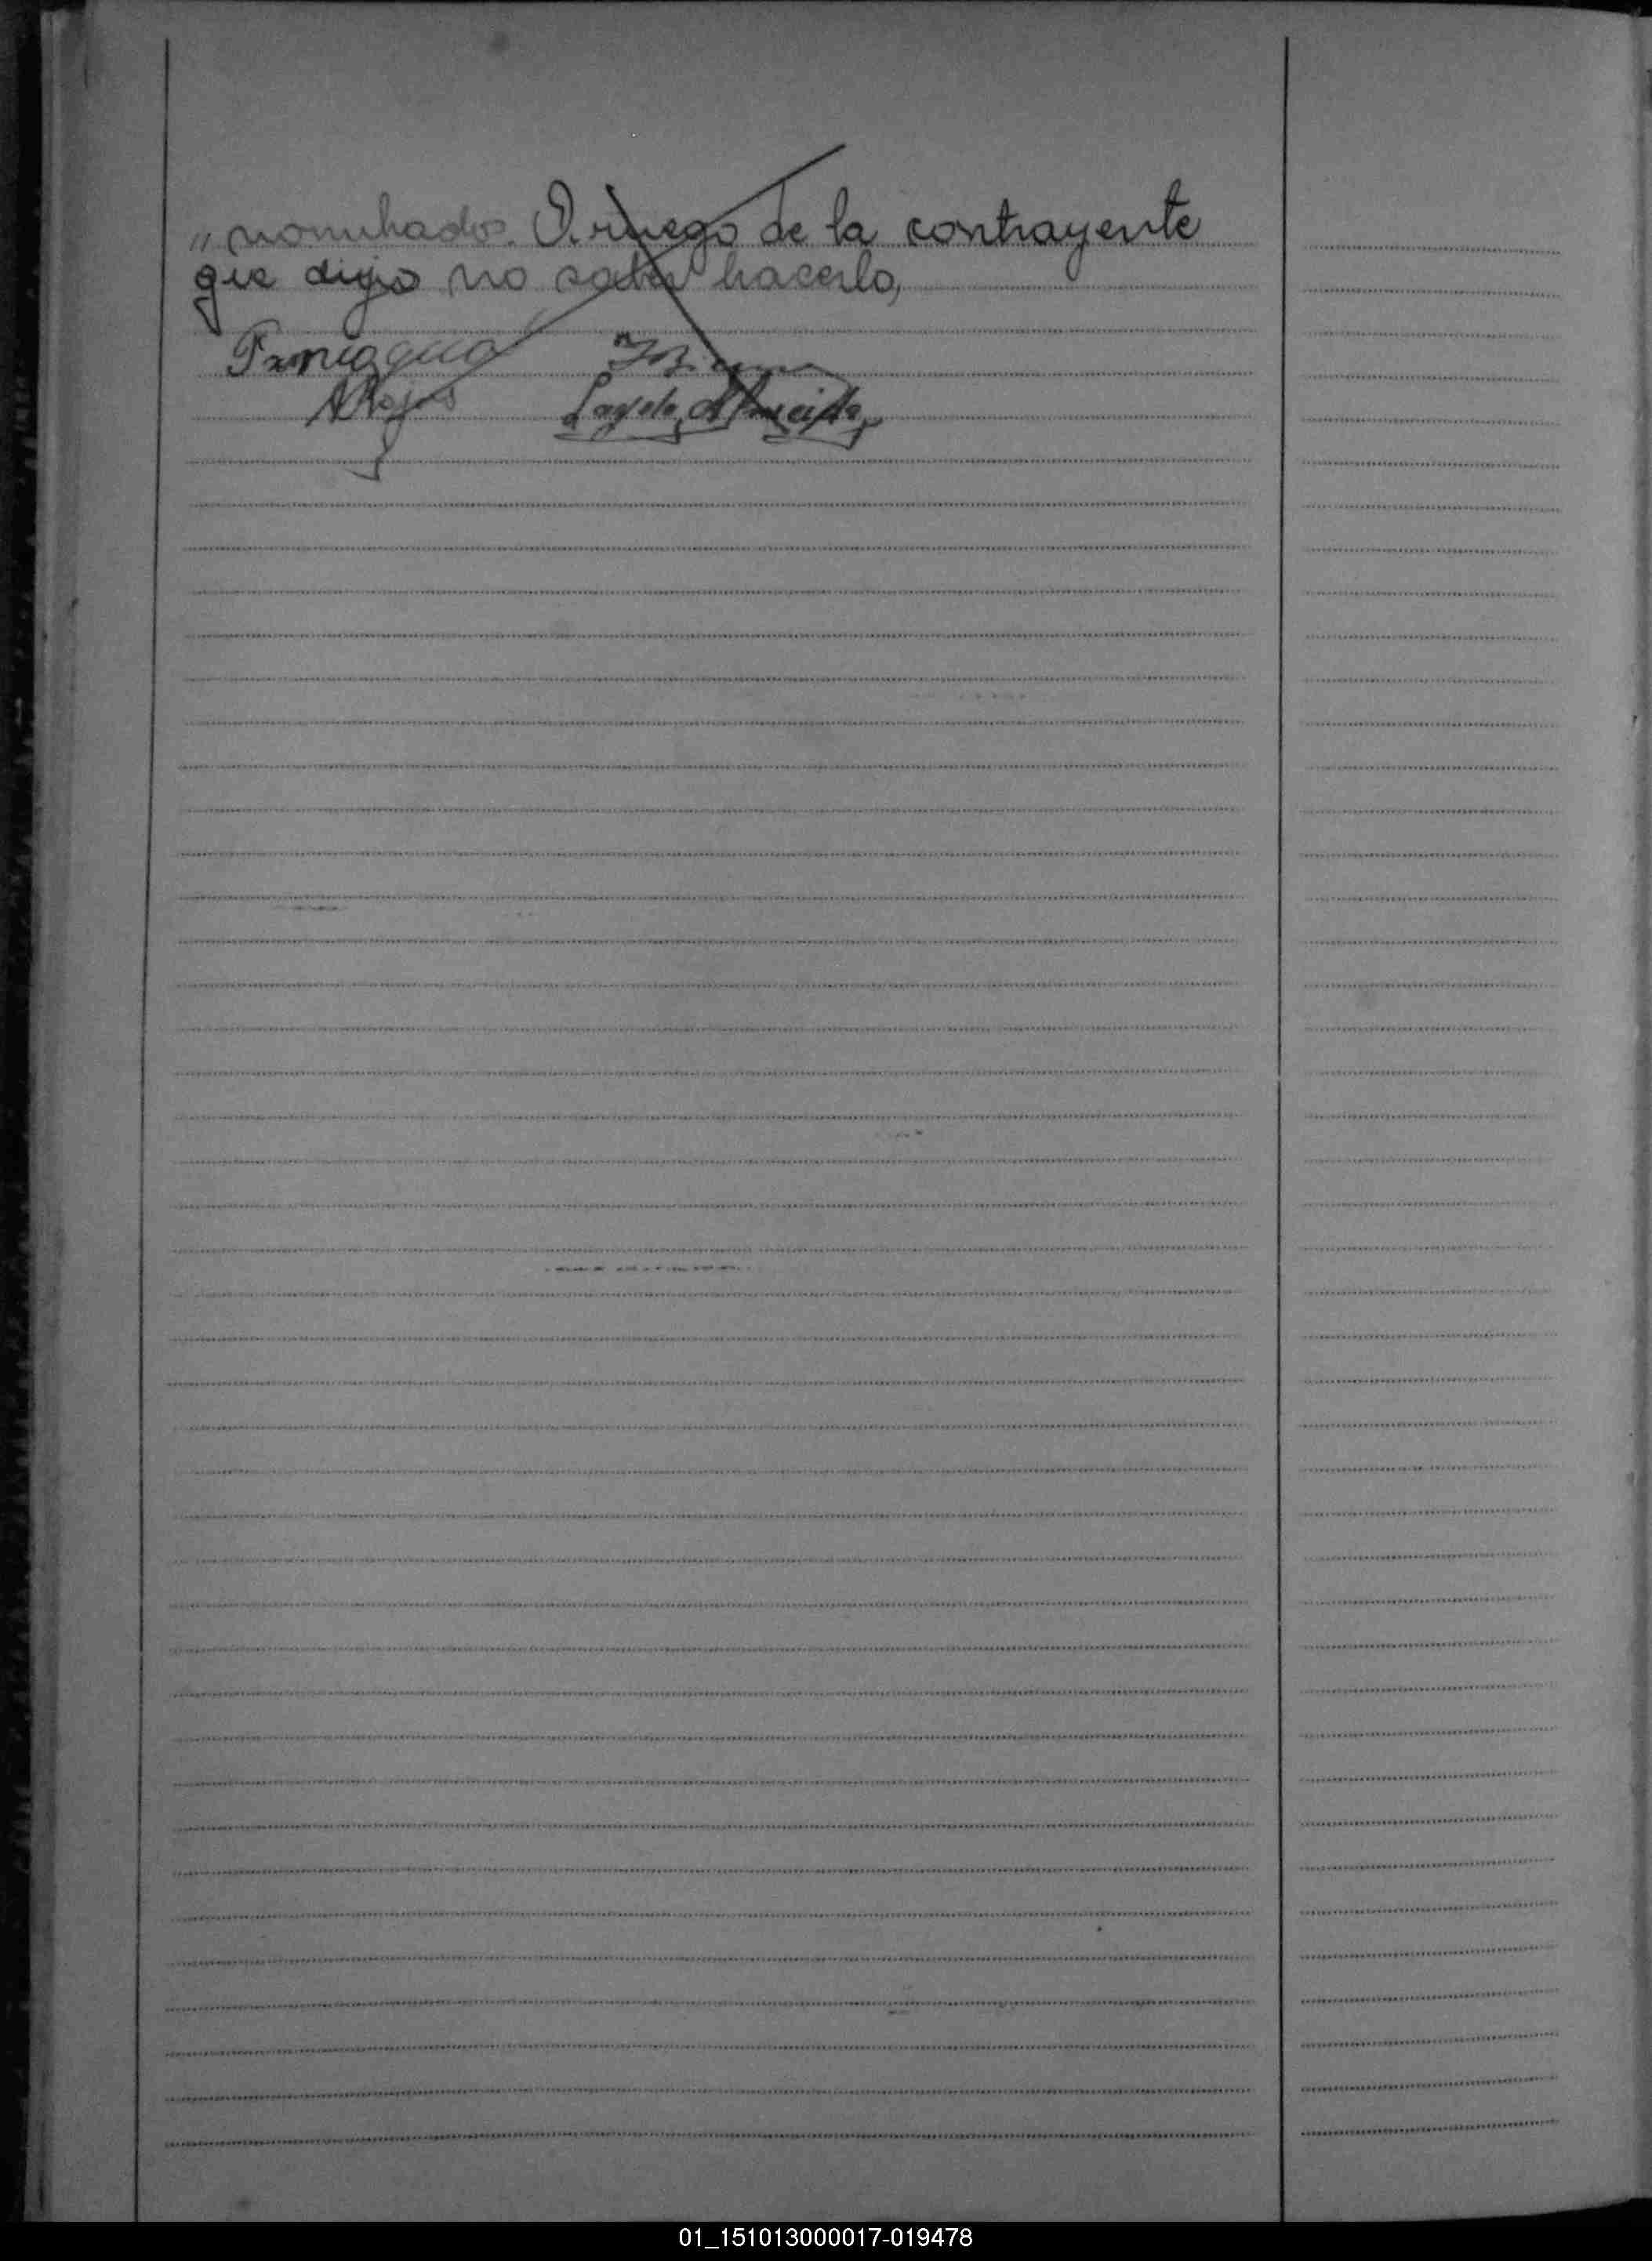 " nombrados. A ruego de la contrayente
que dijo no saber hacerlo,
Paniagua
ARojas
01_151013000017-019478